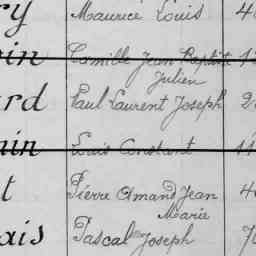 ry Maurice Louis 4
in Camille Jean Baptiste 1
Julien
ard Paul Laurent Joseph 2
in Louis Constant 11
t Pierre Amand Jean 4
Marie
ais Pascal Joseph 7